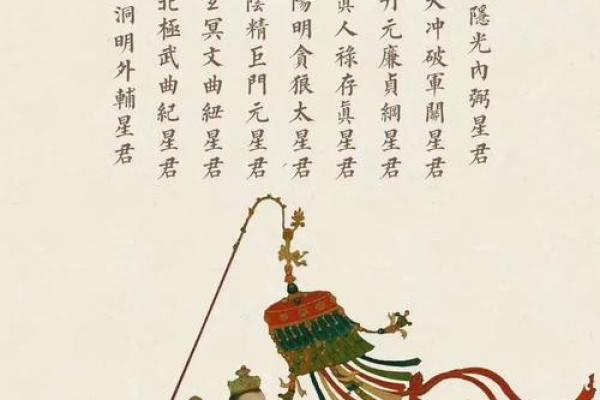 隱光內弼星君
冲破軍關星君
元廉貞綱星君
眞人祿存眞星君
陽明貪狼太星君
陰精巨門元星君
冥文曲紐星君
北極武曲紀星君
洞明外輔星君